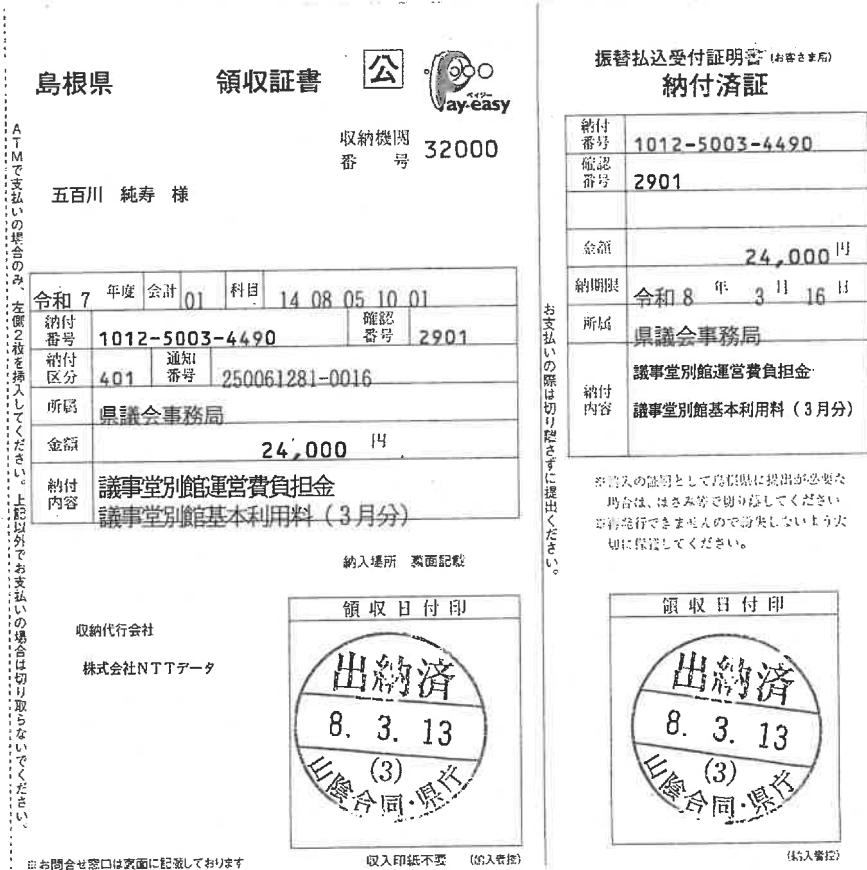 島根県 領収証書 公
ペイジー
Pay-easy
収納機関
番号 32000
五百川 純寿 様
ATMで支払いの場合のみ、左側2枚を挿入してください。上記以外でお支払いの場合は切り取らないでください。
令和 7 年度 会計 01 科目 14 08 05 10 01
納付番号 1012-5003-4490 確認番号 2901
納付区分 401 通知番号 250061281-0016
所属 県議会事務局
金額 24,000 円
納付内容 議事堂別館運営費負担金
議事堂別館基本利用料(3月分)
納入場所 裏面記載
収納代行会社
株式会社NTTデータ
領収日付印
出納済
8. 3. 13
(3)
山陰合同・県庁
※お問合せ窓口は裏面に記載しております
収入印紙不要 (納入者控)
お支払いの際は切り離さずに提出ください。
振替払込受付証明書(お客さま用)
納付済証
納付番号 1012-5003-4490
確認番号 2901
金額 24,000 円
納期限 令和 8 年 3 月 16 日
所属 県議会事務局
納付内容 議事堂別館運営費負担金
議事堂別館基本利用料(3月分)
※納入の証明として島根県に提出が必要な
場合は、はさみ等で切り離してください
※再発行できませんので紛失しないよう大
切に保管してください。
領収日付印
出納済
8. 3. 13
(3)
山陰合同・県庁
(納入者控)